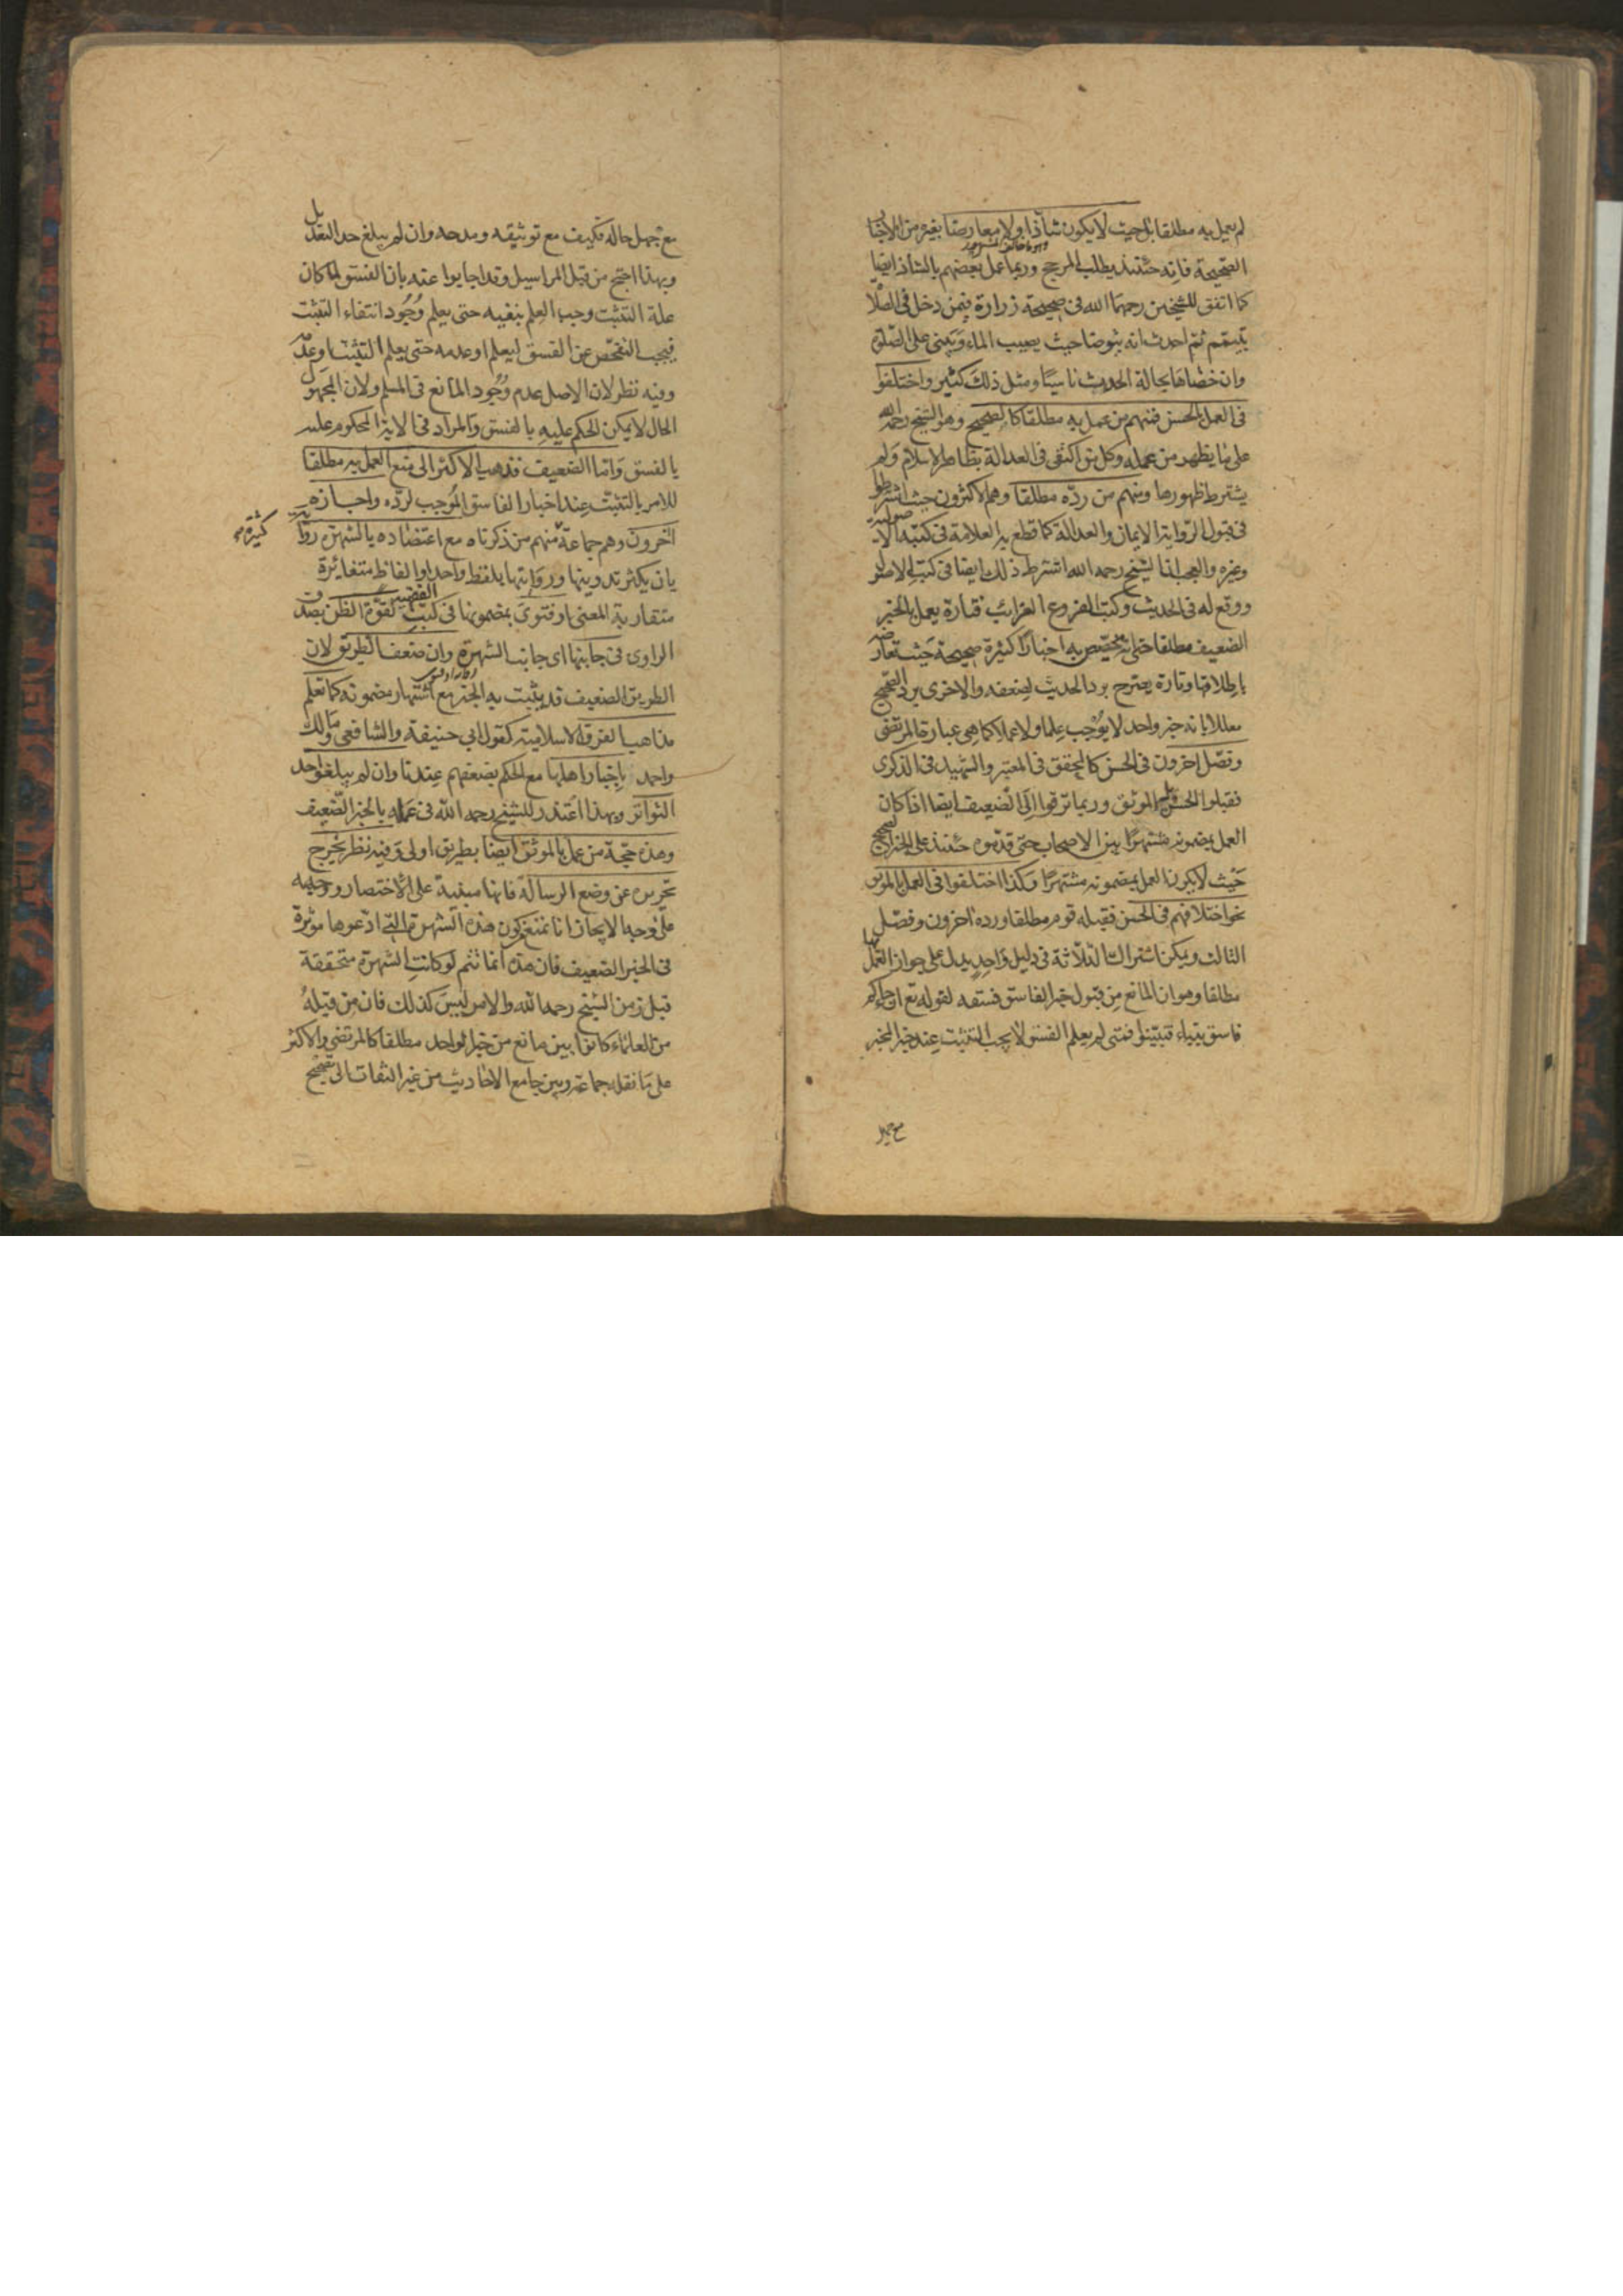 لم يعمل به مطلقا بل حيث لا يكون شاذا او لا معارضا بغيره من الاخبار
الصحيحة فانه حينئذ يطلب المرجح وربما عمل بعضهم بالشاذ ايضا
كما اتفق للشيخين رحمهما الله فى صحيحة زرارة فيمن دخل فى الصلا
بتيمم ثم احدث انه يتوضا حيث يصيب الماء ويبنى على الصلوة
وان خصاها بحالة الحديث ناسيا ومثل ذلك كثير واختلفوا
فى العمل بالحسن فمنهم من عمل به مطلقا كالصحيح وهو الشيخ رحمه الله
على ما يظهر من عمله وكل من اكتفى فى العدالة بظاهر الاسلام ولم
يشترط ظهورها ومنهم من رده مطلقا وهم الاكثرون حيث اشترطوا
فى قبول الرواية الايمان والعدالة كما قطع به العلامة فى كتبه الاصولية
وغيره والعجب ان الشيخ رحمه الله اشترط ذلك ايضا فى كتب الاصول
ووقع له فى الحديث وكتب الفروع الغرائب فتارة يعمل بالخبر
الضعيف مطلقا حتى انه يخصص به اخبارا كثيرة صحيحة حيث تعارضه
باطلاقها وتارة يصرح برد الحديث لضعفه والاخرى برد الصحيح
معللا بانه خبر واحد لا يوجب علما ولا عملا كما هى عبارة المرتضى
وفصل اخرون فى الحسن كالمحقق فى المعتبر والشهيد فى الذكرى
فقبلوا الحسن بل الموثق وربما ترقوا الى الضعيف ايضا اذا كان
العمل بمضمونه مشتهرا بين الاصحاب حتى قدموه حينئذ على الخبر الصحيح
حيث لا يكون العمل بمضمونه مشتهرا وكذا اختلفوا فى العمل بالموثق
نحو اختلافهم فى الحسن فقبله قوم مطلقا ورده اخرون وفصل
الثالث ويمكن اشتراك الثلاثة فى دليل واحد يدل على جواز العمل بها
مطلقا وهو ان المانع من قبول خبر الفاسق فسقه لقوله تع ان جاءكم
فاسق بنباء فتبينوا فمتى لم يعلم الفسق لا يجب التثبت عند خبر المخبر
مع جهل
مع جهل حاله فكيف مع توثيقه ومدحه وان لم يبلغ حد التعديل
وبهذا احتج من قبل المراسيل وقد اجابوا عنه بان الفسق لما كان
علة التثبت وجب العلم بنفيه حتى يعلم وجود انتفاء التثبت
فيجب التفحص عن الفسق ليعلم او عدمه حتى يعلم التثبت او عدمه
وفيه نظر لان الاصل عدم وجود المانع فى المسلم ولان المجهول
الحال لا يمكن الحكم عليه بالفسق والمراد فى الاية المحكوم عليه
بالفسق واما الضعيف فذهب الاكثر الى منع العمل به مطلقا
للامر بالتثبت عند اخبار الفاسق الموجب لرده واجازه
اخرون وهم جماعة كثيرة منهم من ذكرناه مع اعتضاده بالشهرة رواية
بان يكثر تدوينها وروايتها بلفظ واحد او الفاظ متغائرة
متقاربة المعنى او فتوى بمضمونها فى كتب الفقهية لقوة الظن بصدق
الراوى فى جانبها اى جانب الشهرة وان ضعف الطريق لان
الطريق الضعيف قد يثبت به الخبر مع اشتهار مضمونه كما تعلم
مذاهب الفرق الاسلامية كقول ابى حنيفة والشافعى ومالك
واحمد باخبار اهلها مع الحكم بضعفهم عندنا وان لم يبلغوا حد
التواتر وبهذا اعتذر للشيخ رحمه الله فى عمله بالخبر الضعيف
وهذه حجة من عمل بالموثق ايضا بطريق اولى وفيه نظر يخرج
تحريره عن وضع الرسالة فانها مبنية على الاختصار ووجهه
على وجه الايجاز انا نمنع من كون هذه الشهرة التى ادعوها موثرة
فى الخبر الضعيف فان هذا انما تتم لو كانت الشهرة متحققة
قبل زمن الشيخ رحمه الله والامر ليس كذلك فان من قبله
من العلماء كانوا بين مانع من خبر الواحد مطلقا كالمرتضى والاكثر
على ما نقله جماعة وبين جامع الاحاديث من غير التفات الى تصحيح